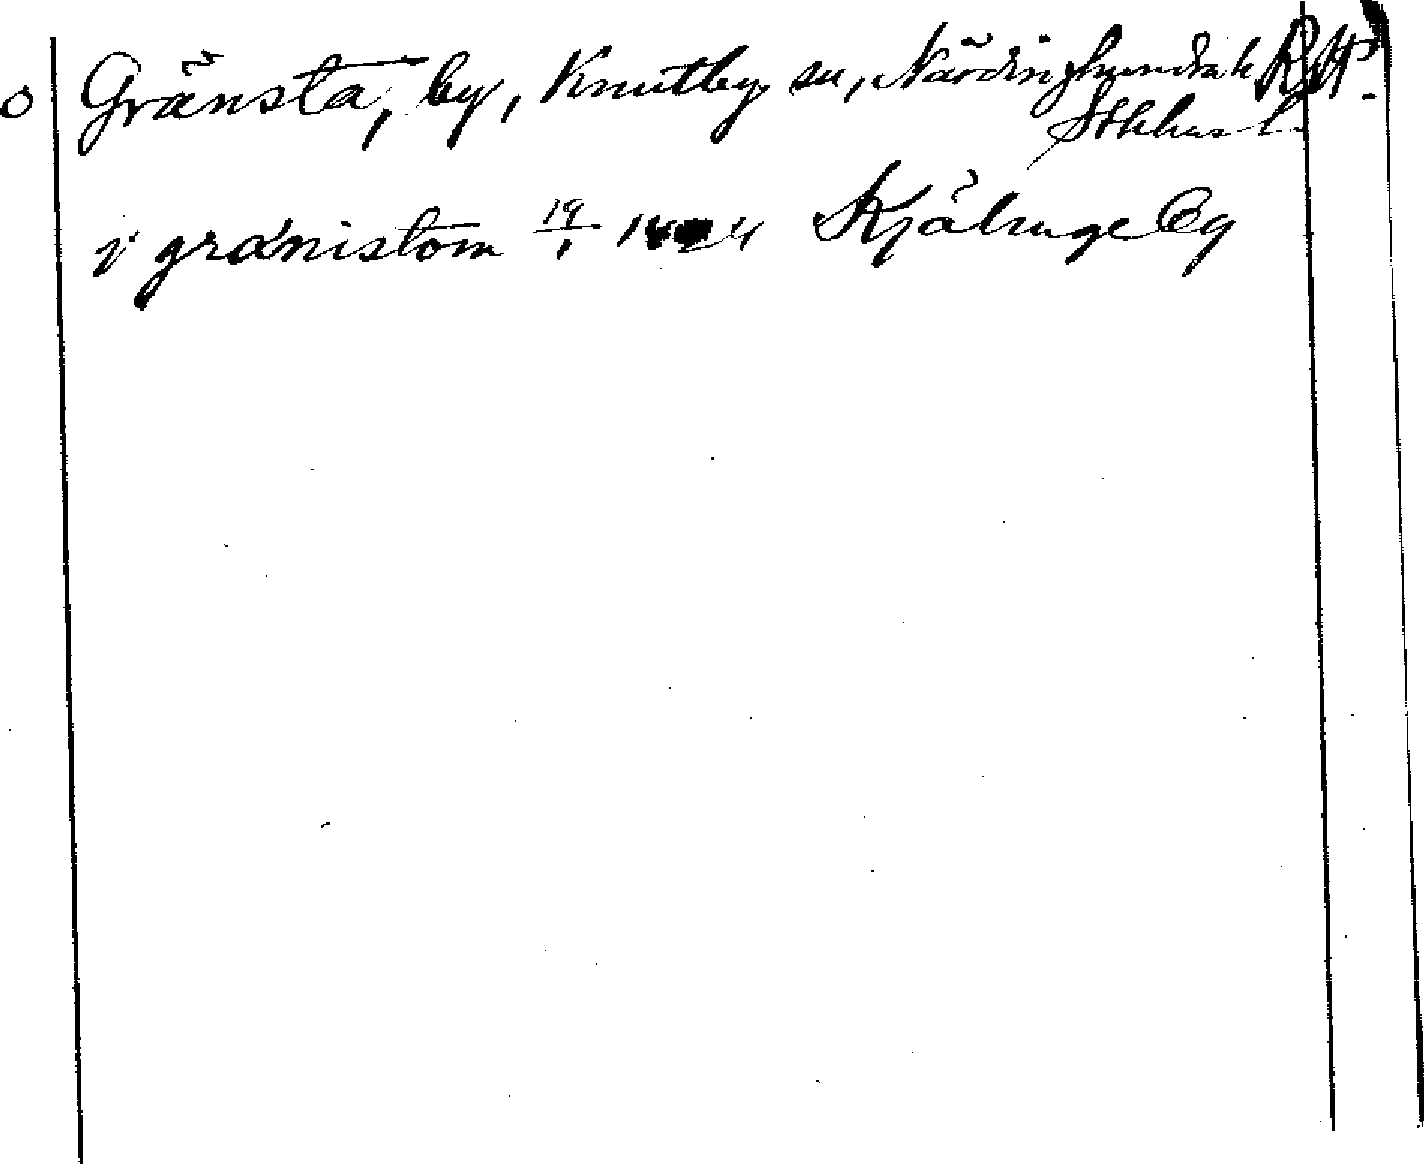 Gränsta, by, Knutby sn, Närdinghundra h
Sthlms l.
j granistom 19/1 14 Kjälunge Cy